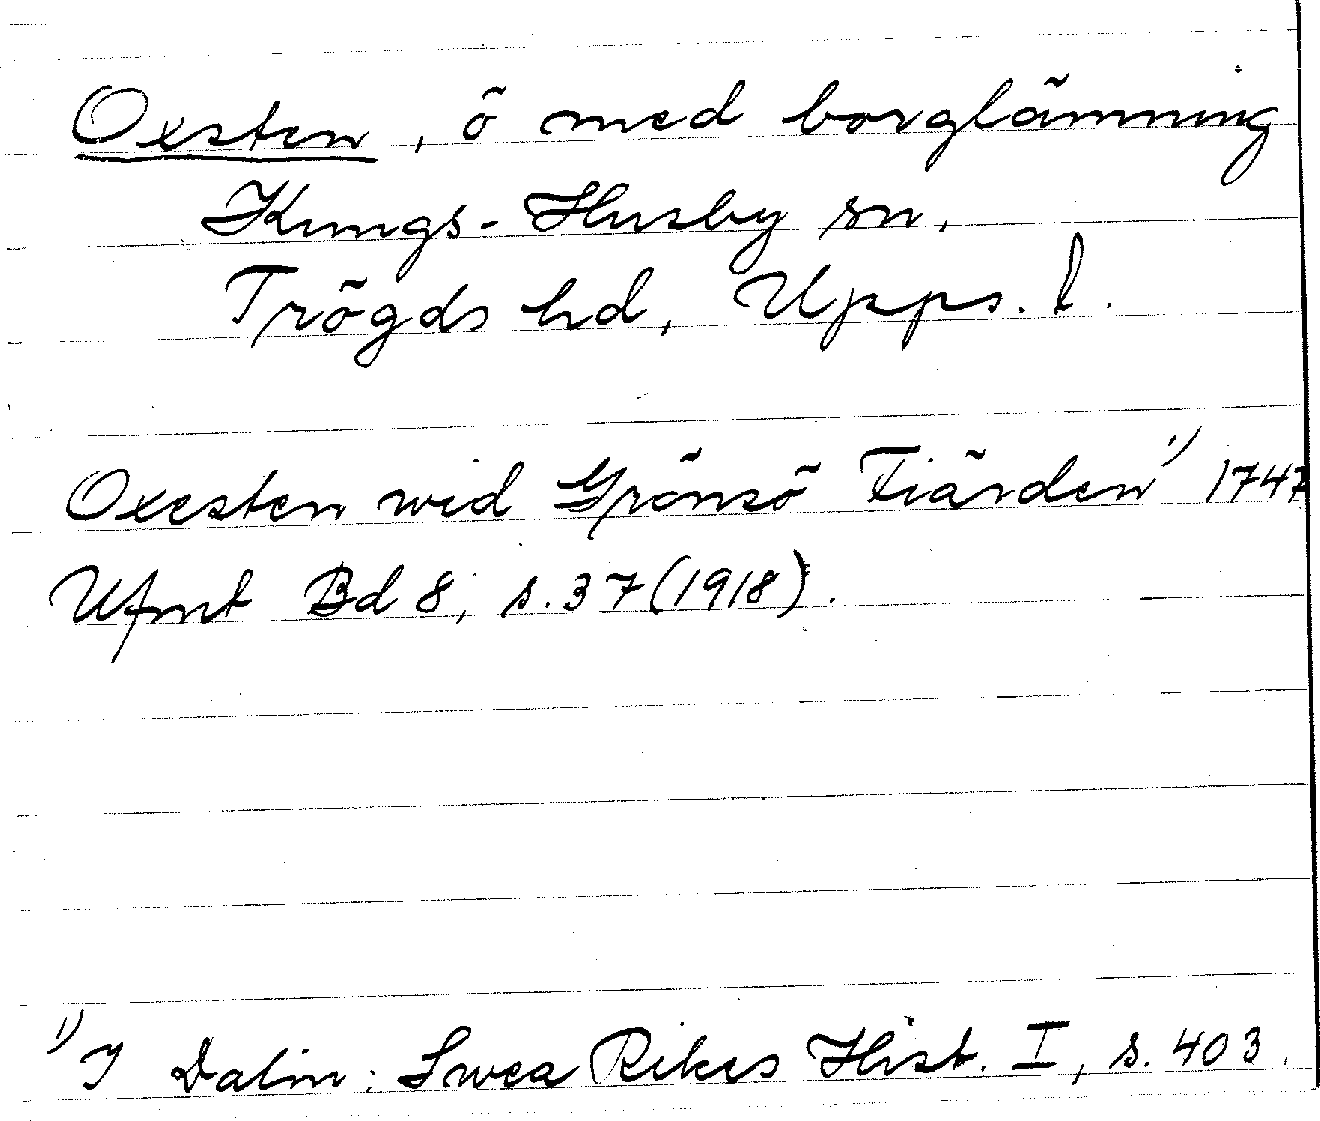 Oxsten, ö med borglämning
Kungs-Husby sn.
Trögds hd, Upps. l.
Oxesten wid Grönsö Fiärden 1) 1747
Ufmt Bd 8, s. 37 (1918).
1) I Dalin: Swea Rikes Hist. I, s. 403.